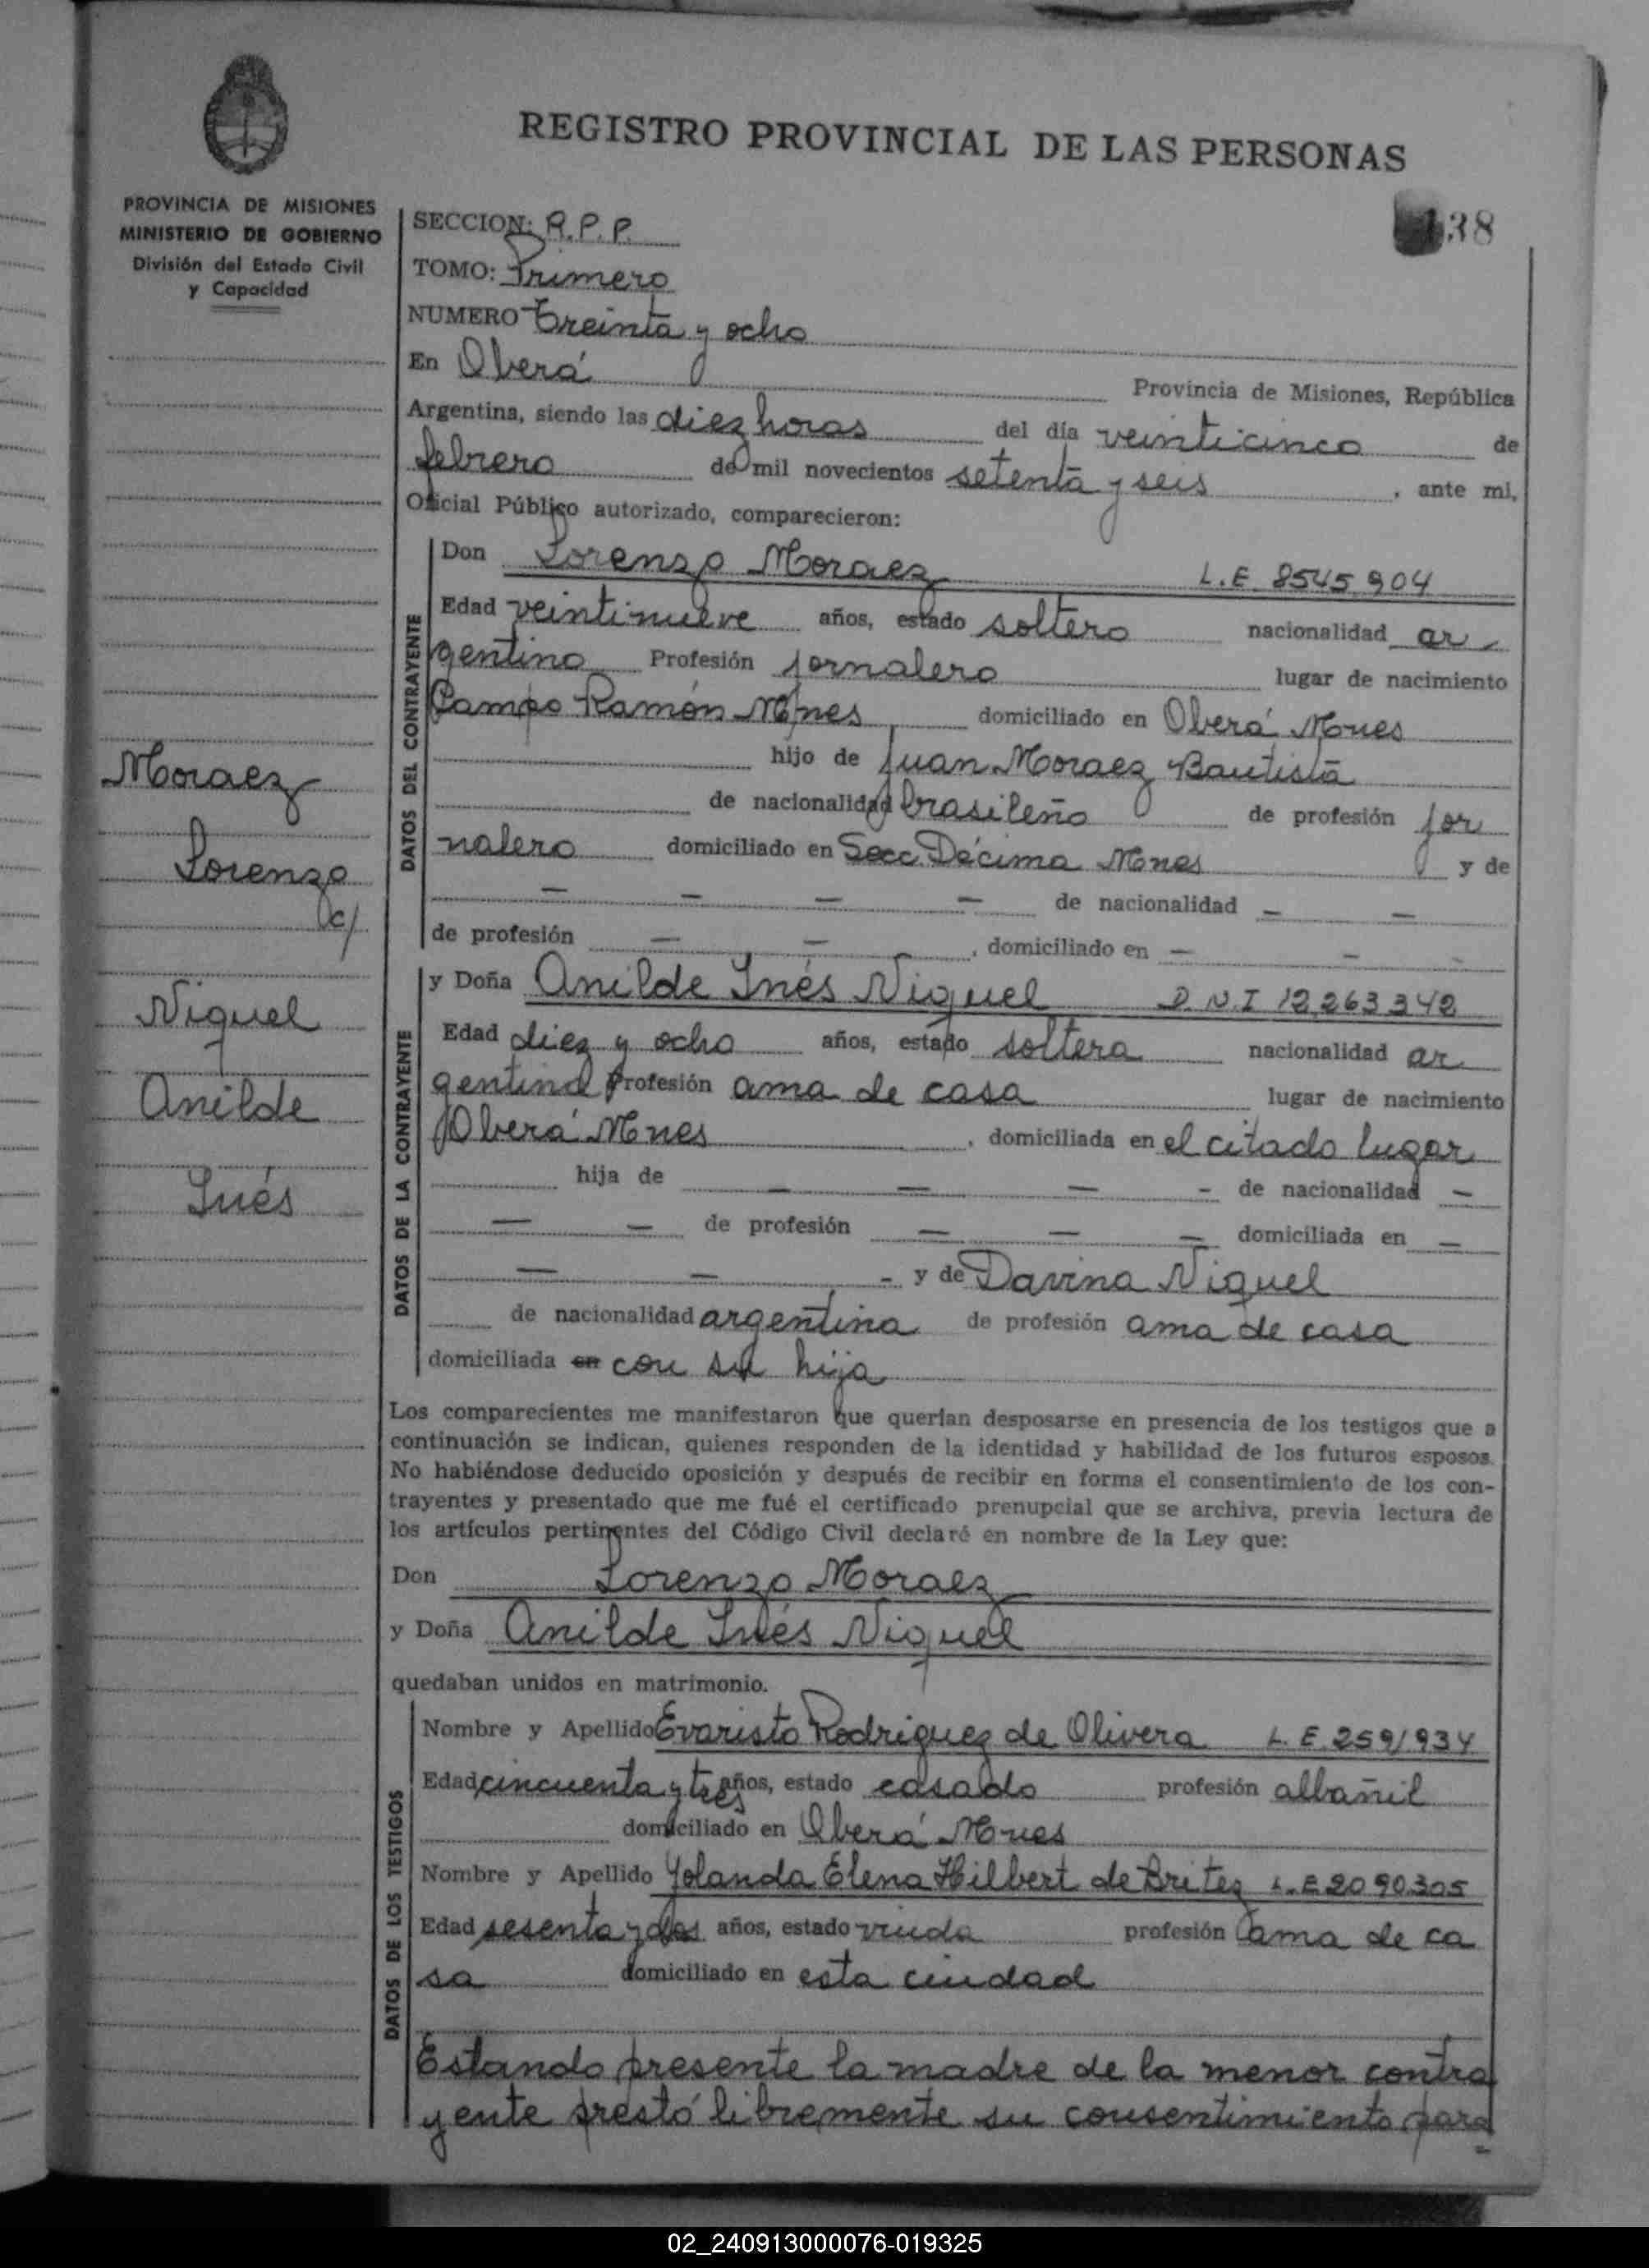 REGISTRO PROVINCIAL DE LAS PERSONAS
38
PROVINCIA DE MISIONES
MINISTERIO DE GOBIERNO
División del Estado Civil
y Capacidad
SECCION: R.P.P.
TOMO: Primero
NUMERO Treinta y ocho
En Oberá Provincia de Misiones, República
Argentina, siendo las diez horas del día veinticinco de
febrero de mil novecientos setenta y seis, ante mi,
Oficial Público autorizado, comparecieron:
DATOS DEL CONTRAYENTE
Don Lorenzo Moraez L.E 8545904
Edad veintinueve años, estado soltero nacionalidad ar
gentino Profesión jornalero lugar de nacimiento
Campo Ramón Mnes domiciliado en Oberá Mnes
hijo de Juan Moraez Bautista
de nacionalidad brasileño de profesión jor
nalero domiciliado en Secc. Décima Mnes y de
— — — — de nacionalidad — —
de profesión — —, domiciliado en — — -
Moraez
Lorenzo
c/
Niquel
Anilde
Inés
DATOS DE LA CONTRAYENTE
y Doña Anilde Inés Niquel D.N.I 12.263.342
Edad diez y ocho años, estado soltera nacionalidad ar
gentina Profesión ama de casa lugar de nacimiento
Oberá Mnes, domiciliada en el citado lugar
hija de — — — - de nacionalidad —
— — de profesión — — — domiciliada en —
— — - y de Davina Niquel
de nacionalidad argentina de profesión ama de casa
domiciliada en con su hija
Los comparecientes me manifestaron que querían desposarse en presencia de los testigos que a
continuación se indican, quienes responden de la identidad y habilidad de los futuros esposos.
No habiéndose deducido oposición y después de recibir en forma el consentimiento de los con-
trayentes y presentado que me fué el certificado prenupcial que se archiva, previa lectura de
los artículos pertinentes del Código Civil declaré en nombre de la Ley que:
Don Lorenzo Moraez
y Doña Anilde Inés Niquel
quedaban unidos en matrimonio.
DATOS DE LOS TESTIGOS
Nombre y Apellido Evaristo Rodriguez de Olivera L.E. 2591934
Edad cincuenta y tres años, estado casado profesión albañil
domiciliado en Oberá Mnes
Nombre y Apellido Yolanda Elena Hilbert de Britez L.E 2090305
Edad sesenta y dos años, estado viuda profesión ama de ca
sa domiciliado en esta ciudad
Estando presente la madre de la menor contra
yente prestó libremente su consentimiento para
02_240913000076-019325